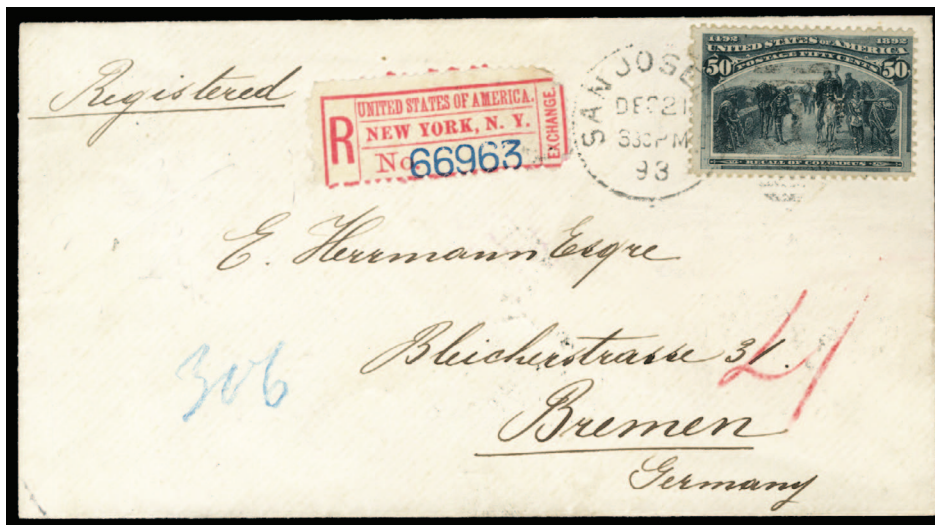 Registered
UNITED STATES OF AMERICA.
R NEW YORK, N. Y. EXCHANGE.
No 66963
SAN JOSE
DEC 21
330PM
93
1492 1892
UNITED STATES OF AMERICA
POSTAGE FIFTY CENTS
50 50
RECALL OF COLUMBUS
E. Herrmann Esqre
Bleicherstrasse 31.
306
Bremen
Germany